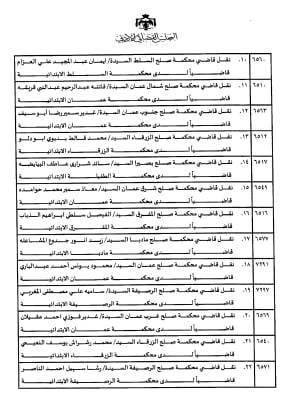 المجلس القضائي الأردني
٦٥٦٠ ١٠. نقل قاضي محكمة صلح السلط السيدة/ ايمان عبد المجيد علي العزام
قاضياً لدى محكمة السلط الابتدائية
٦٥١٠ ١١. نقل قاضي محكمة صلح شمال عمان السيدة/ فاتنه عبدالرحيم عبدالنبي فريقه
قاضياً لدى محكمة عمان الابتدائية
٦٥٦٣ ١٢. نقل قاضي محكمة صلح جنوب عمان السيدة/ غدير سمير رضا ابو سيف
قاضياً لدى محكمة عمان الابتدائية
٦٥١٢ ١٣. نقل قاضي محكمة صلح الزرقاء السيد/ محمد بديوي ابو دلو
قاضياً لدى محكمة الزرقاء الابتدائية
٦٥١٧ ١٤. نقل قاضي محكمة صلح بصيرا السيد/ سائد شراري عاطف البيايضه
قاضياً لدى محكمة الطفيلة الابتدائية
٦٥٤٩ ١٥. نقل قاضي محكمة صلح شرق عمان السيد/ معاذ سمير محمد حوامده
قاضياً لدى محكمة عمان الابتدائية
٦٥١٦ ١٦. نقل قاضي محكمة صلح المفرق السيد/ الفيصل سلطي ابراهيم الذياب
قاضياً لدى محكمة المفرق الابتدائية
٦٥٧٧ ١٧. نقل قاضي محكمة صلح مادبا السيد/ رعد انور جدوع المشاعله
قاضياً لدى محكمة مادبا الابتدائية
٧٢٩١ ١٨. نقل قاضي محكمة صلح عمان السيد/ محمود يونس احمد عبدالباري
قاضياً لدى محكمة عمان الابتدائية
٧٢٢٧ ١٩. نقل قاضي محكمة صلح الرصيفة السيدة/ ساميه علي مصطفى المغربي
قاضياً لدى محكمة الرصيفة الابتدائية
٦٥٦٩ ٢٠. نقل قاضي محكمة صلح غرب عمان السيدة/ غدير فوزي احمد عقيلان
قاضياً لدى محكمة عمان الابتدائية
٦٥٤٠ ٢١. نقل قاضي محكمة صلح الزرقاء السيد/ محمد يوسف النعيمي
قاضياً لدى محكمة الزرقاء الابتدائية
٦٥٧١ ٢٢. نقل قاضي محكمة صلح الرصيفة السيدة/ رشا نبيل احمد الناصر
قاضياً لدى محكمة الرصيفة الابتدائية